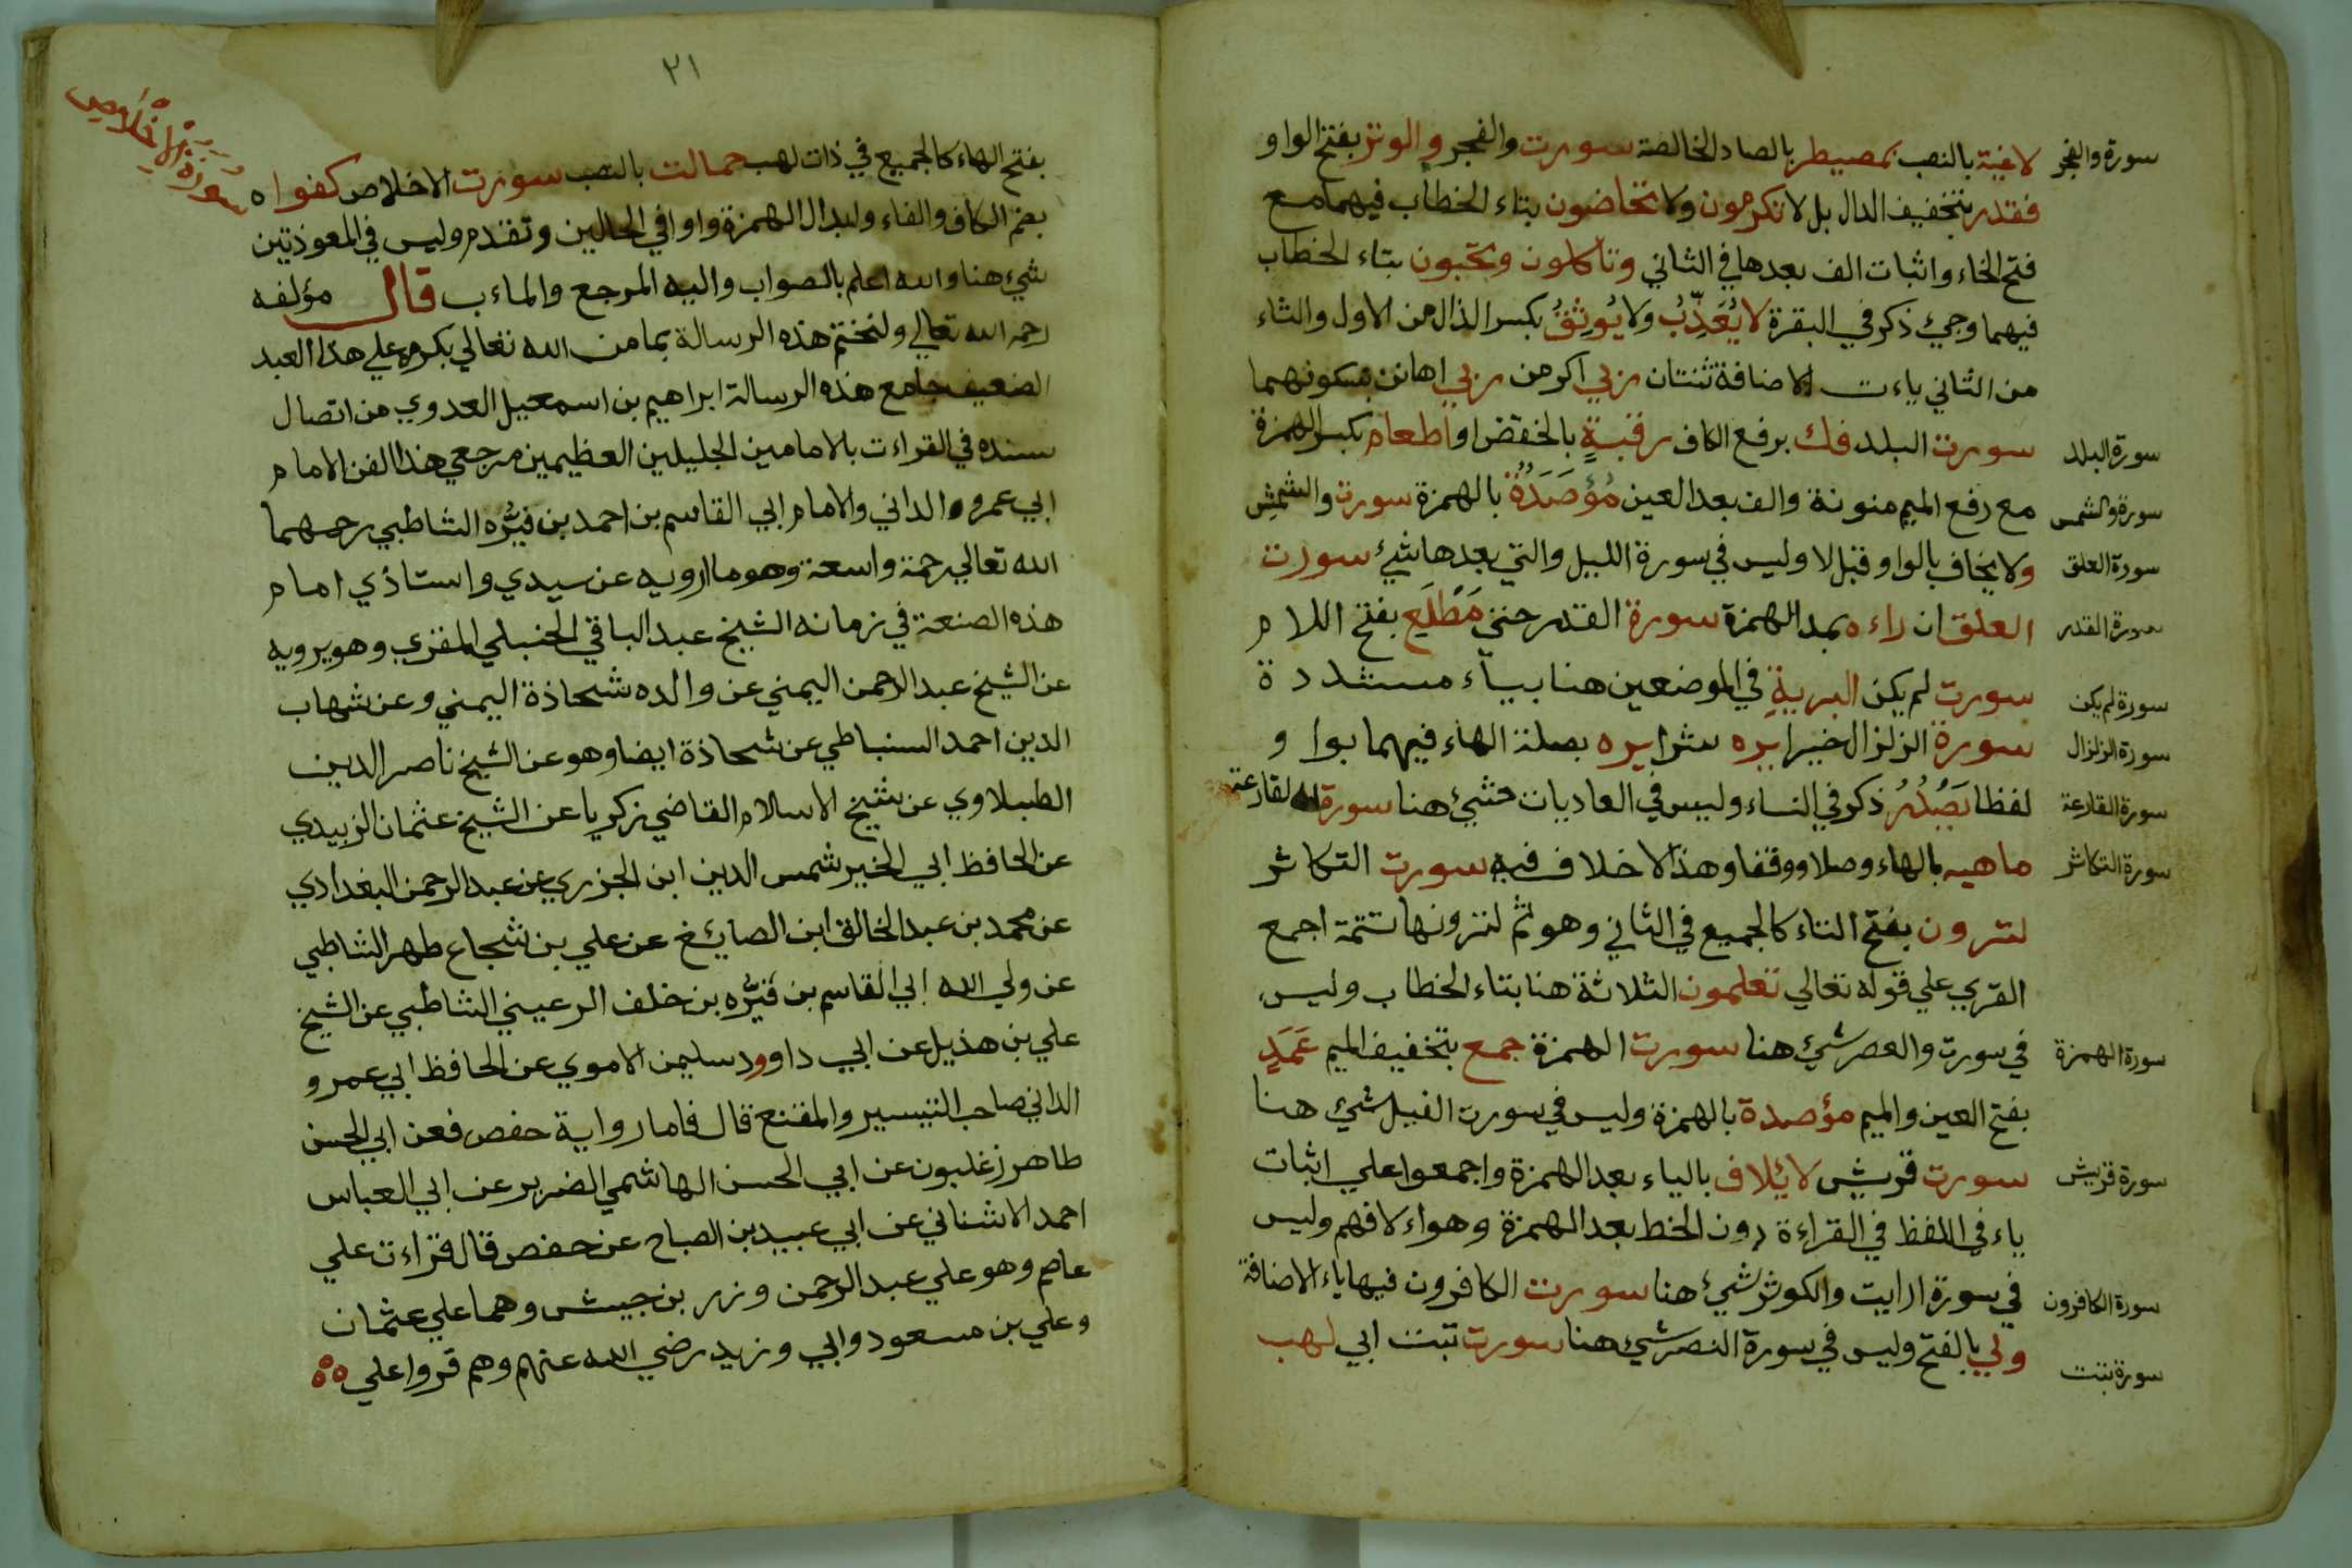 سورة والفجر
لاغية بالنصب بمصيطر بالصاد الخالصة سورت والفجر والوتر بفتح الواو
فقدر بتخفيف الدال بل لا تكرمون ولا تحاضون بتاء الخطاب فيهما مع
فتح الحاء واثبات الف بعدها في الثاني وتاكلون وتحبون بتاء الخطاب
فيهما وجيء ذكر في البقرة لا يُعَذِّبُ ولا يُوثِقُ بكسر الذال من الاول والثاء
من الثاني ياءت الاضافة ثنتان ربي اكرمن ربي اهانن بسكونهما
سورة البلد
سورت البلد فك برفع الكاف رقبةٍ بالخفض او اطعام بكسر الهمزة
سورة والشمس
مع رفع الميم منونة والف بعد العين مُؤْصَدَةٌ بالهمزة سورت والشمس
سورة العلق
ولا يخاف بالواو قبل لا وليس في سورة الليل والتي بعدها شيء سورت
سورة القدر
العلق ان راءه بمد الهمزة سورة القدر حتي مَطْلَعِ بفتح اللام
سورة لم يكن
سورت لم يكن البريةِ في الموضعين هنا بياء مشددة
سورة الزلزال
سورة الزلزال خيرا يره شرا يره بصلة الهاء فيهما بواو
سورة القارعة
لفظا يَصْدُرُ ذكر في النساء وليس في العاديات شيء هنا سورة القارعة
سورة التكاثر
ماهيه بالهاء وصلا ووقفا وهذا لا خلاف فيه سورت التكاثر
لترون بفتح التاء كالجميع في الثاني وهو ثم لترونها تتمة اجمع
القري علي قوله تعالي تعلمون الثلاثة هنا بتاء الخطاب وليس
سورة الهمزة
في سورت والعصر شيء هنا سورت الهمزة جمع بتخفيف الميم عَمَدٍ
بفتح العين والميم مؤصدة بالهمزة وليس في سورت الفيل شيء هنا
سورة قريش
سورت قريش لايلاف بالياء بعد الهمزة واجمعوا علي اثبات
ياء في اللفظ في القراءة دون الخط بعد الهمزة وهو اءلافهم وليس
سورة الكافرون
في سورة ارايت والكوثر شيء هنا سورت الكافرون فيها ياء الاضافة
سورة تبت
ولي بالفتح وليس في سورة النصر شيء هنا سورت تبت ابي لهب
٢١
سُورَةُ الْإِخْلَاصِ
بفتح الهاء كالجميع في ذات لهب حمالت بالنصب سورت الاخلاص كفوا ه
بضم الكاف والفاء وابدال الهمزة واوا في الحالين وتقدم وليس في المعوذتين
شيء هنا والله اعلم بالصواب واليه المرجع والماءب قال مؤلفه
رحمه الله تعالي ولنختم هذه الرسالة بما من الله تعالي بكرمه علي هذا العبد
الضعيف جامع هذه الرسالة ابراهيم بن اسمعيل العدوي من اتصال
سنده في القراءت بالامامين الجليلين العظيمين مرجعي هذا الفن الامام
ابي عمرو الداني والامام ابي القاسم بن احمد بن فيرُّه الشاطبي رحمهما
الله تعالي رحمة واسعة وهو ما ارويه عن سيدي واستاذي امام
هذه الصنعة في زمانه الشيخ عبد الباقي الحنبلي المقري وهو يرويه
عن الشيخ عبد الرحمن اليمني عن والده شحاذة اليمني وعن شهاب
الدين احمد السنباطي عن شحاذة ايضا وهو عن الشيخ ناصر الدين
الطبلاوي عن شيخ الاسلام القاضي زكريا عن الشيخ عثمان الزبيدي
عن الحافظ ابي الخير شمس الدين ابن الجزري عن عبد الرحمن البغدادي
عن محمد بن عبد الخالق ابن الصايئغ عن علي بن شجاع طهر الشاطبي
عن ولي الله ابي القاسم بن فيرُّه بن خلف الرعيني الشاطبي عن الشيخ
علي بن هذيل عن ابي داوود سليمن الاموي عن الحافظ ابي عمرو
الداني صاحب التيسير والمقنع قال فاما رواية حفص فعن ابي الحسن
طاهر زغلبون عن ابي الحسن الهاشمي الضرير عن ابي العباس
احمد الاشناني عن ابي عبيد بن الصباح عن حفص قال قراءت علي
عاصم وهو علي عبد الرحمن وزر بن حبيش وهما علي عثمان
وعلي بن مسعود وابي وزيد رضي الله عنهم وهم قروا علي